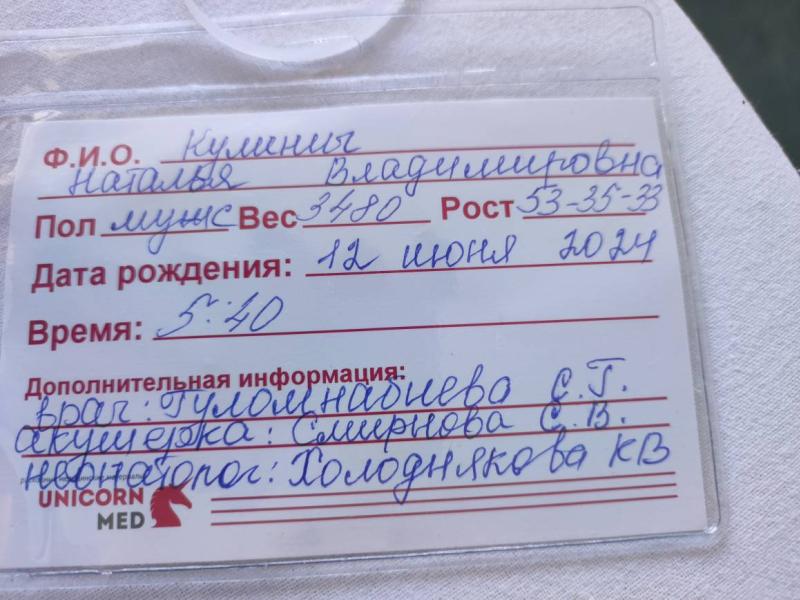 Ф.И.О. Кулинич
Наталья Владимировна
Пол мужс Вес 3480 Рост 53-35-33
Дата рождения: 12 июня 2024
Время: 5:40
Дополнительная информация:
врач: Гуломнабиева С.Г.
акушерка: Смирнова С.В.
неонатолог: Холоднякова КВ
UNICORN
MED